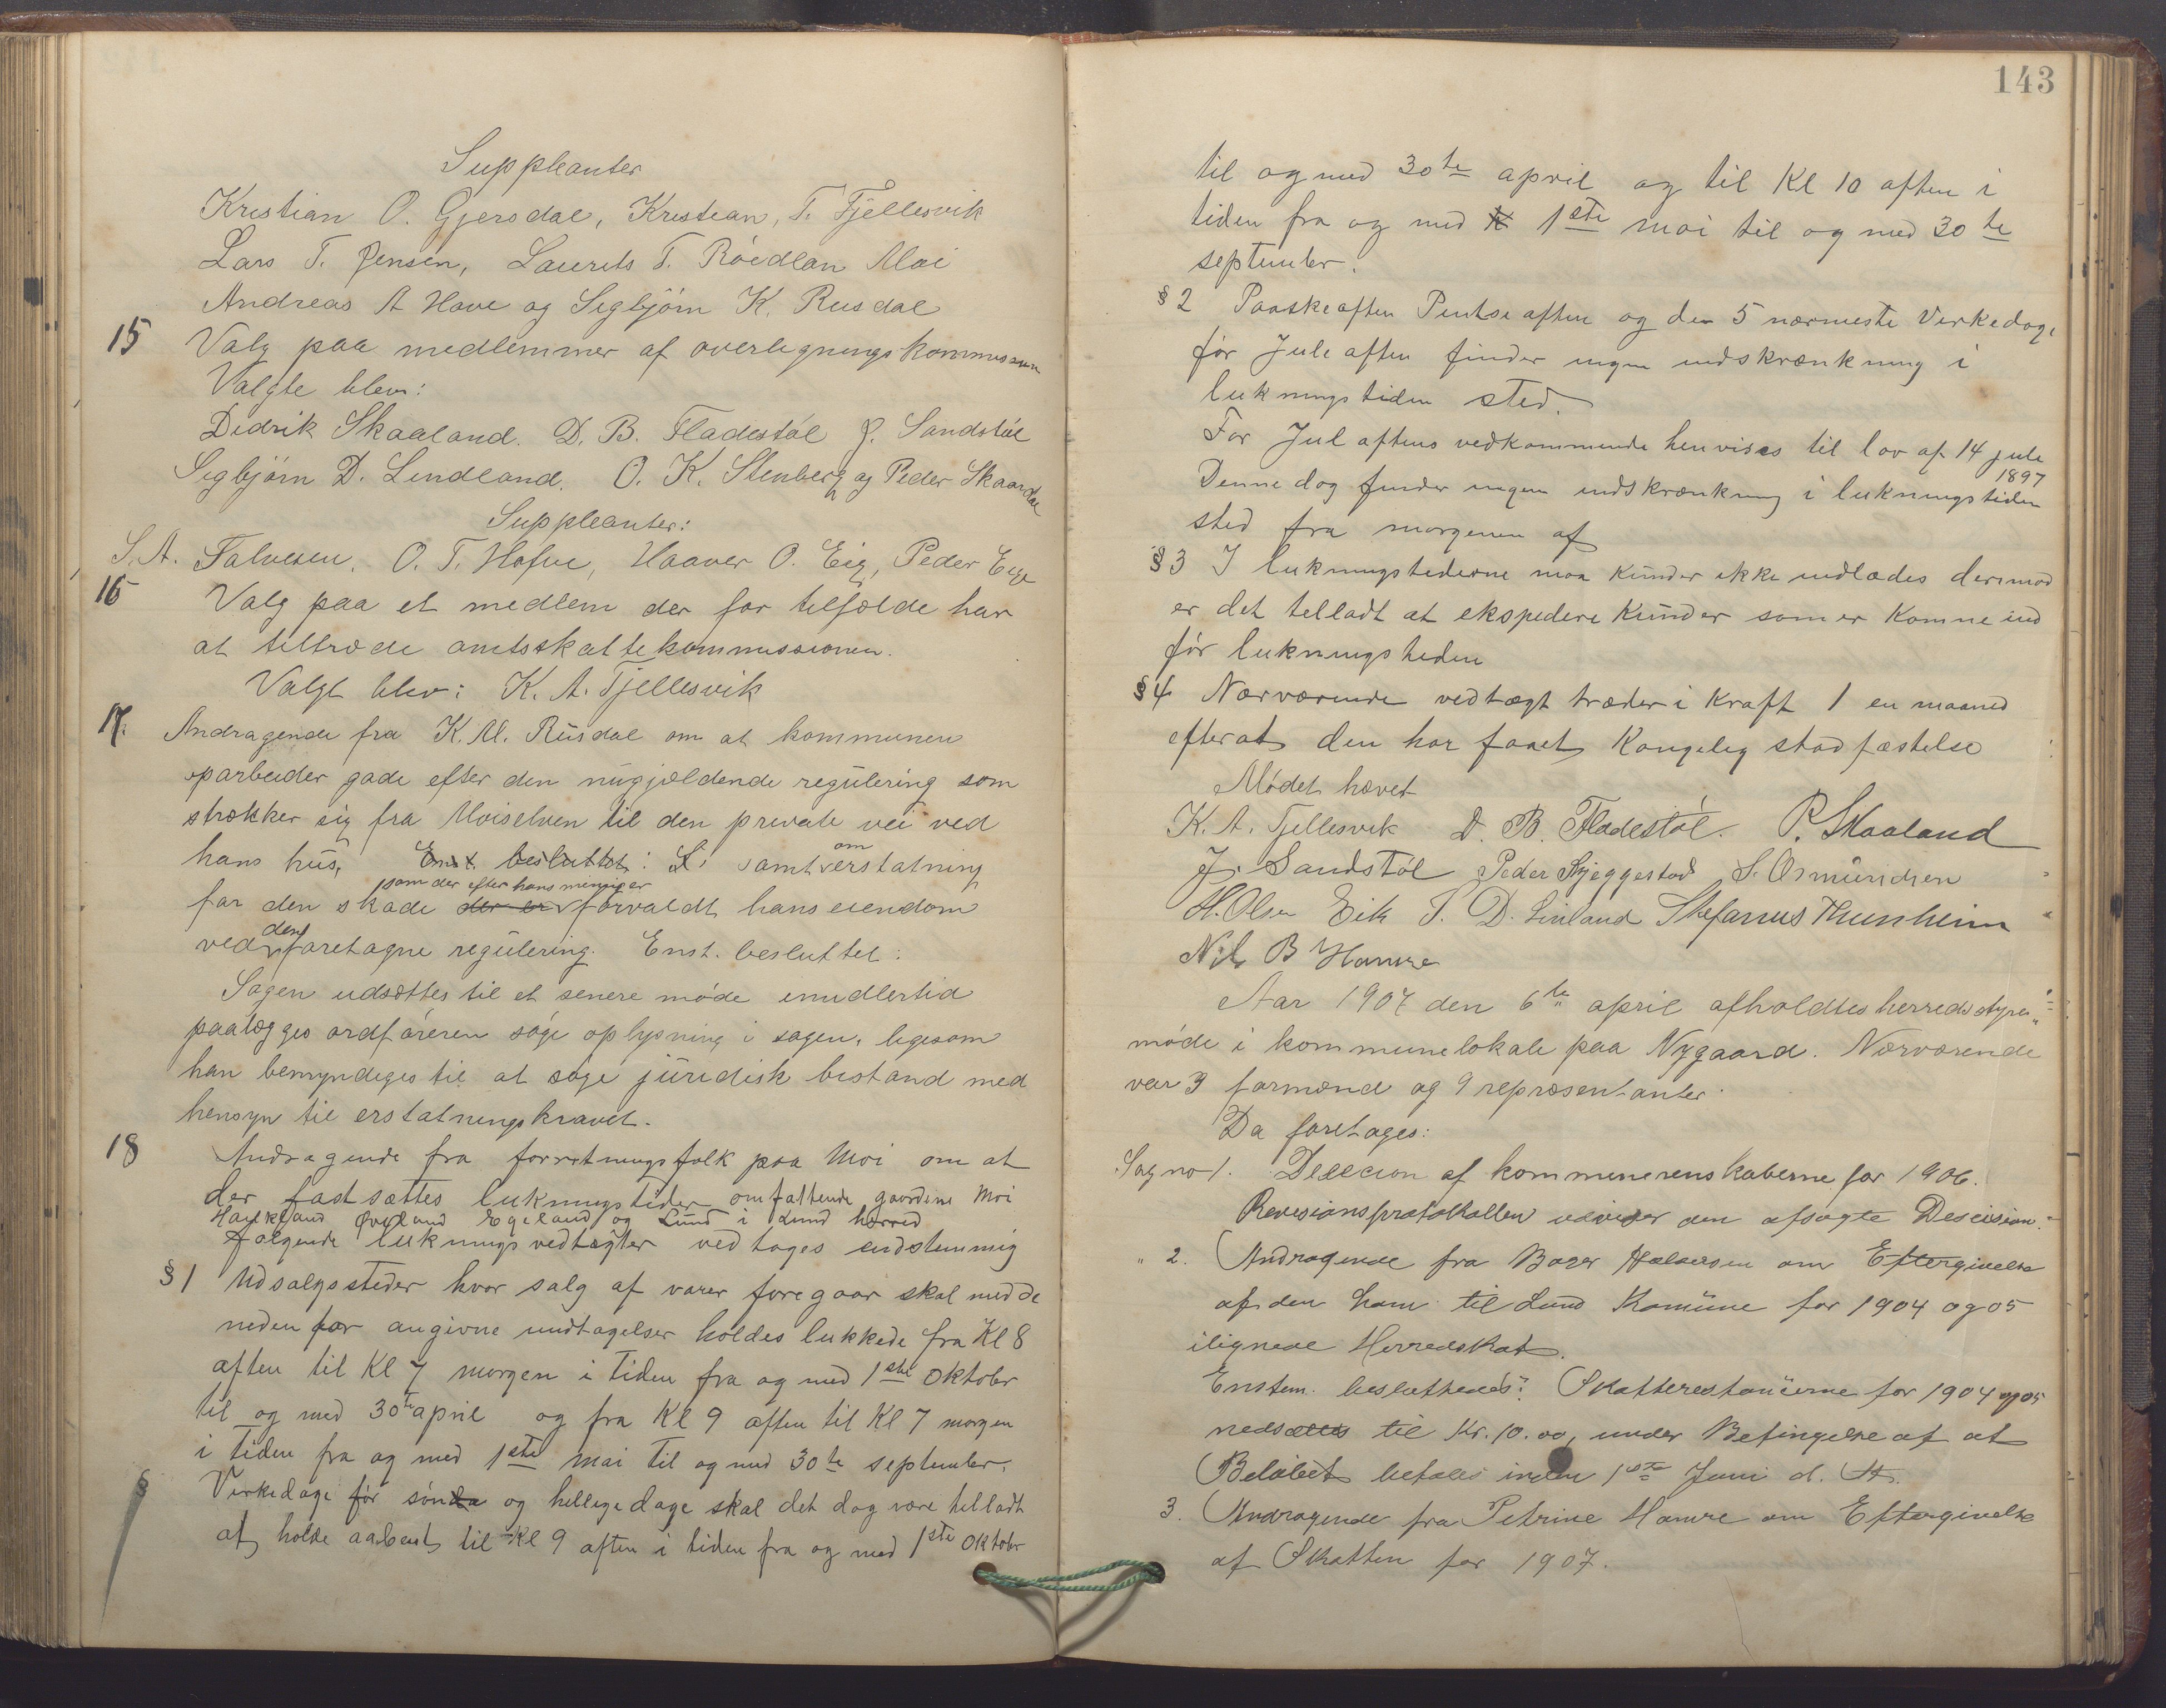 Suppleanter
Kristian O. Gjersdal, Kristian T. Fjellesvik
Lars T. Jensen, Laurits T. Röidlan Moi
Andreas A Hove og Segbjörn K. Rusdal
15 Valg paa medlemmer af overlegningskommissionen
Valgte blev:
Didrik Skaaland. D. B. Fladestöl J. Sandstöl
Segbjörn D. Lindland. O. K. Stenberg og Peder Skaardal
Suppleanter:
S. A. Salvesen, O. T. Hofve, Haaver O. Eig, Peder Eige
16 Valg paa et medlem der for tilfælde har
at tiltræde amtsskattekommissionen.
Valgt blev: K. A. Fjellesvik
17. Andragende fra K. M. Rusdal om at kommunen
oparbeider gade efter den nugjældende regulering som
strækker sig fra Moiselven til den private vei ved
hans hus, Enst. besluttet: samt om erstatning
for den skade der er som der efter hans mening er forvaldt hans eiendom
ved den foretagne regulering. Enst. besluttet:
Sagen udsættes til et senere möde imidlertid
paalægges ordföreren söge oplysning i sagen, ligesom
han bemyndiges til at söge juridisk bistand med
hensyn til erstatningskravet.
18 Andragende fra forretningsfolk paa Moi om at
der fastsættes lukningstider omfattende gaardene Moi
Haukland Øvreland Egeland og Lund i Lund herred
Følgende lukningsvedtægter vedtages endstemmig
§1 Udsalgssteder hvor salg af varer foregaar skal med de
neden for angivne undtagelser holdes lukkede fra Kl 8
aften til Kl 7 morgen i tiden fra og med 1ste Oktober
til og med 30te april og fra Kl 9 aften til Kl 7 morgen
i tiden fra og med 1ste mai til og med 30te september.
§ Virkedage för sönda og hellige dage skal det dog være tilladt
at holde aabent til Kl 9 aften i tiden fra og med 1ste Oktober
143
til og med 30te april og til Kl 10 aften i
tiden fra og med 1ste mai til og med 30te
september.
§2 Paaskeaften Pintseaften og de 5 nærmeste Virkedage
för Juleaften finder ingen indskrænkning i
lukningstiden sted.
For Julaftens vedkommende henvises til lov af 14 juli
1897
Denne dag finder ingen indskrænkning i lukningstiden
sted fra morgenen af
§3 I lukningstiderne maa kunder ikke indlades derimod
er det tilladt at ekspedere kunder som er komne ind
för lukningstiden
§4 Nærværende vedtægt træder i Kraft 1 en maaned
efterat den har faaet Kongelig stadfæstelse
Mödet hævet
K. A. Fjellesvik D. B. Fladestöl. P. Skaaland
J. Sandstöl Peder Skjeggestad S. Osmundsen
H. Olsen Eik S. D. Linland Stefanus Thunheim
Nils B Hamre
Aar 1907 den 6te april afholdtes herredsstyre-
möde i kommunelokale paa Nygaard. Nærværende
var 3 formænd og 9 repræsentanter.
Da foretages:
Sag no 1. Desecion af kommunerenskaberne for 1906.
Revisionsprotokollen udviser den afsagte Descision.
" 2. Andragende fra Halvorsen om Eftergivelse
af den ham til Lund Komune for 1904 og 05
ilignede Herredskat.
Enstem. besluttedes: Skatterestancerne for 1904 og 05
nedsættes til Kr. 10.00, under Betingelse af at
Belöbet betales inden 1ste Juni d. A.
3. Andragende fra Petrine Hamre om Eftergivelse
af Skatten for 1907.